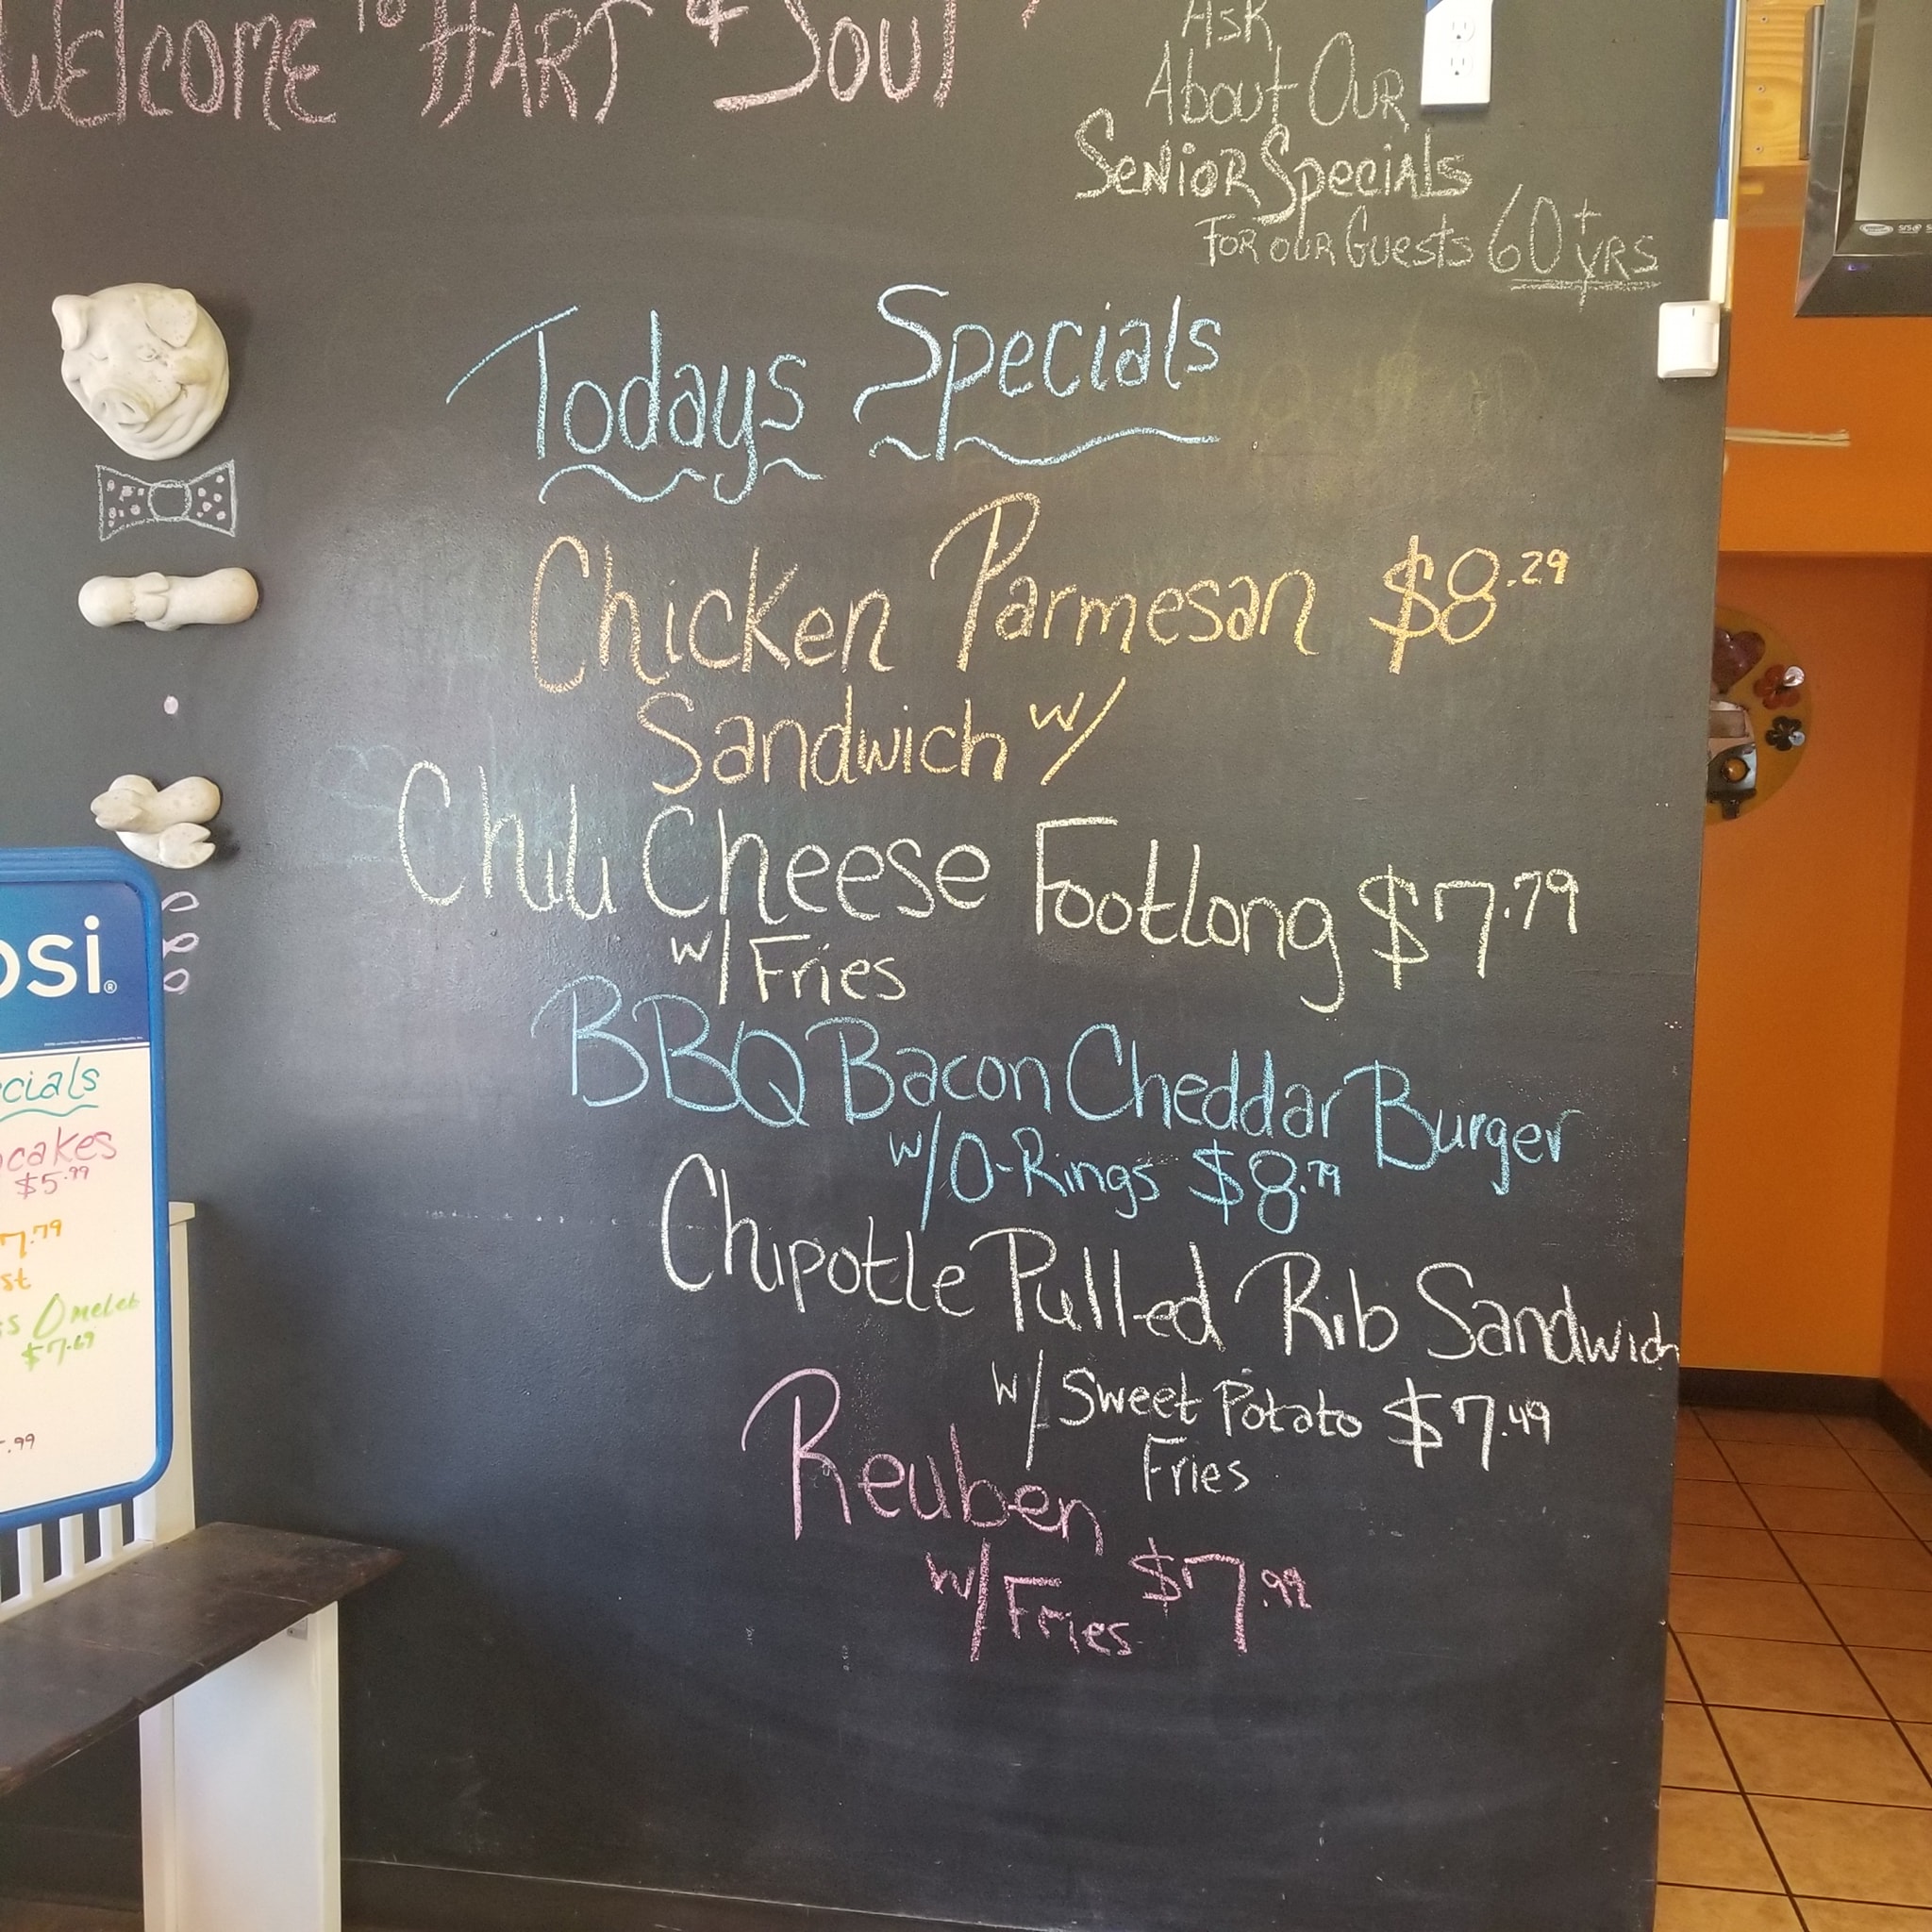 Welcome to HART & Soul
Ask
About Our
Senior Specials
For our Guests 60+ yrs
Todays Specials
Chicken Parmesan $8.29
Sandwich w/
Chili Cheese Footlong $7.79
w/ Fries
BBQ Bacon Cheddar Burger
w/ O-Rings $8.79
Chipotle Pulled Rib Sandwich
w/ Sweet Potato $7.49
Fries
Reuben
w/ Fries $7.99
psi®
cials
cakes
$5.99
7.79
st
ss Omelet
$7.69
.99